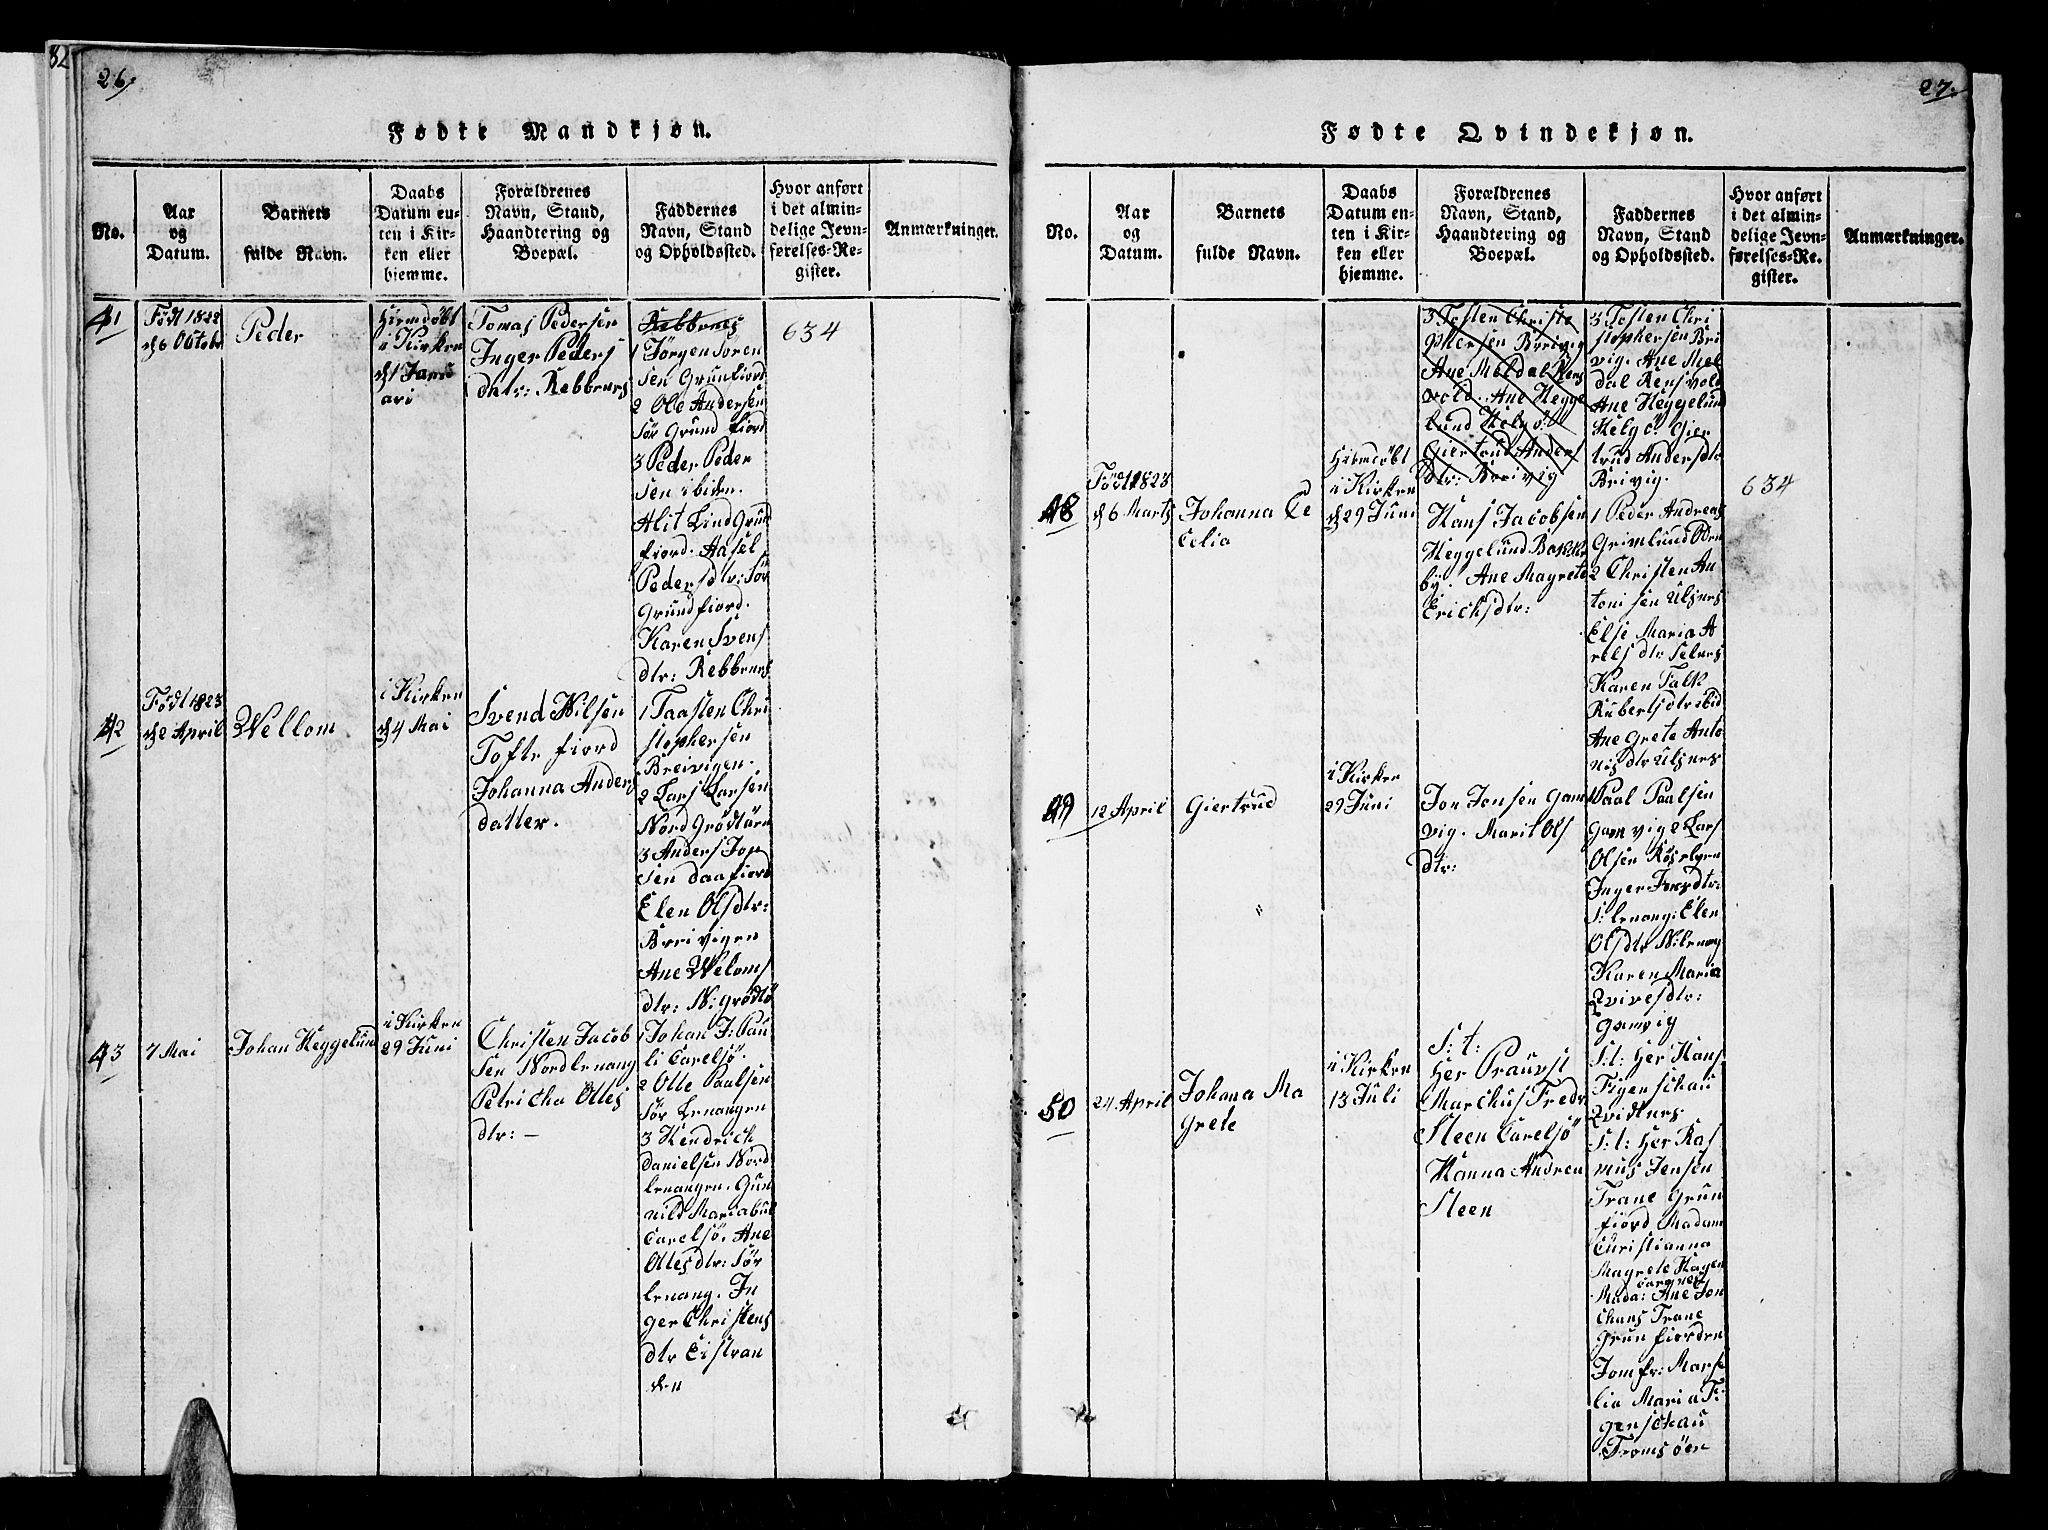 26.
Fødte Mandkjøn.
No.
Aar
og
Datum.
Barnets
fulde Navn.
Daabs
Datum en-
ten i Kir-
ken eller
hjemme.
Forældrenes
Navn, Stand,
Haandtering og
Boepæl.
Faddernes
Navn, Stand
og Opholdssted.
Hvor anført
i det almin-
delige Jevn-
førelses-Re-
gister.
Anmærkninger.
41
Födt 1822
d 6 Octobr
Peder
Hiemdöbt
i Kirken
d 1 Janu
ari
Tomas Pedersen
Inger Peders
datr: Rebbenes
Rebbenes
1 Jörgen Sören
sen Grunfiord
2 Ole Andersen
Sör Grundfiord
3 Peder Peder
sen ibiden.
Alit Lind Grun
fiord. Aasel
Pedersdtr: Sör
Grundfiord.
Karen Svens
dtr: Rebbenes
634
42
Födt 1823
d 2 April
Wellom
i Kirken
d 4 Mai
Svend Nilsen
Tofte fiord
Johanna Anders
datter.
1 Taasten Chri
stophersen
Breivigen.
2 Lars Larsen
Nord Grödtöen
3 Anders Jon
sen daafiord
Elen Olsdtr:
Breivigen
Ane Weloms
dtr: N: grödtö
43
7 Mai
Johan Heggelund
i Kirken
29 Juni
Christen Jacob
sen Nordlenang
Petricha Olles
dtr: —
1 Johan J: Pau
li Carelsö.
2 Olle Paalsen
Sör Lenangen
3 Hendrich
Danielsen Nord
lenangen. Gun
nild Maria
Carelsö. Ane
Ollesdtr: Sör
lenang. In
ger Christens
dtr Eistran
den
27.
Fødte Qvindekjøn.
No.
Aar
og
Datum.
Barnets
fulde Navn.
Daabs
Datum en-
ten i Kir-
ken eller
hjemme.
Forældrenes
Navn, Stand,
Haandtering og
Boepæl.
Faddernes
Navn, Stand
og Opholdssted.
Hvor anført
i det almin-
delige Jevn-
førelses-Re-
gister.
Anmærkninger.
3 Tosten Christo
phersen Breivig
Ane Meldal Rens
vold. Ane Hegge
lund Helgö.
Giertrud Anders
dtr: Breivig
3 Tosten Chri
stophersen Bre
vig. Ane Mel
dal Rensvold
Ane Heggelund
Helgö. Gier
trud Andersdtr
Brivig.
48
Födt 1823
d 6 Marts
Johanna Ce
celia
Hiemdöbt
i Kirken
d 29 Juni
Hans Jacobsen
Heggelund Bakke
by. Ane Magrete
Erichsdtr:
1 Peder Andreas
Grimlund
2 Christen An
tonisen Ulsnes
Else Maria A
relsdtr Selnes
Karen Falk
Rubertsdtr ibid
Ane Grete Anto
nisdtr Ulsnes
634
49
12 April
Giertrud
i Kirken
29 Juni
Jon Jonsen Gam
vig. Marit Ols
dtr:
1 Paal Paalsen
Gamvig 2 Lars
Olsen
Inger Jonsdtr:
S: lenang: Elen
Olsdtr N: lenang
Karen Maria
Qvivesdtr:
Gamvig
50
24 April
Johana Ma
grete
i Kirken
13 Juli
S: t:
Her Prauvst
Marchus Fredr
Steen Carelsö
Hanna Andrea
Steen
S: t: Her Hans
Figenschau
Qvidtnes
S: t: Her Ras
mus Jensen
Trane Grun
fiord Madam
Christianna
Magrete Hagen
Carqnes
Mada: Ane Jon
chans Trane
Grunfiorden
Jomfr: Marse
lia Maria Fi
genschau
Tromsöen